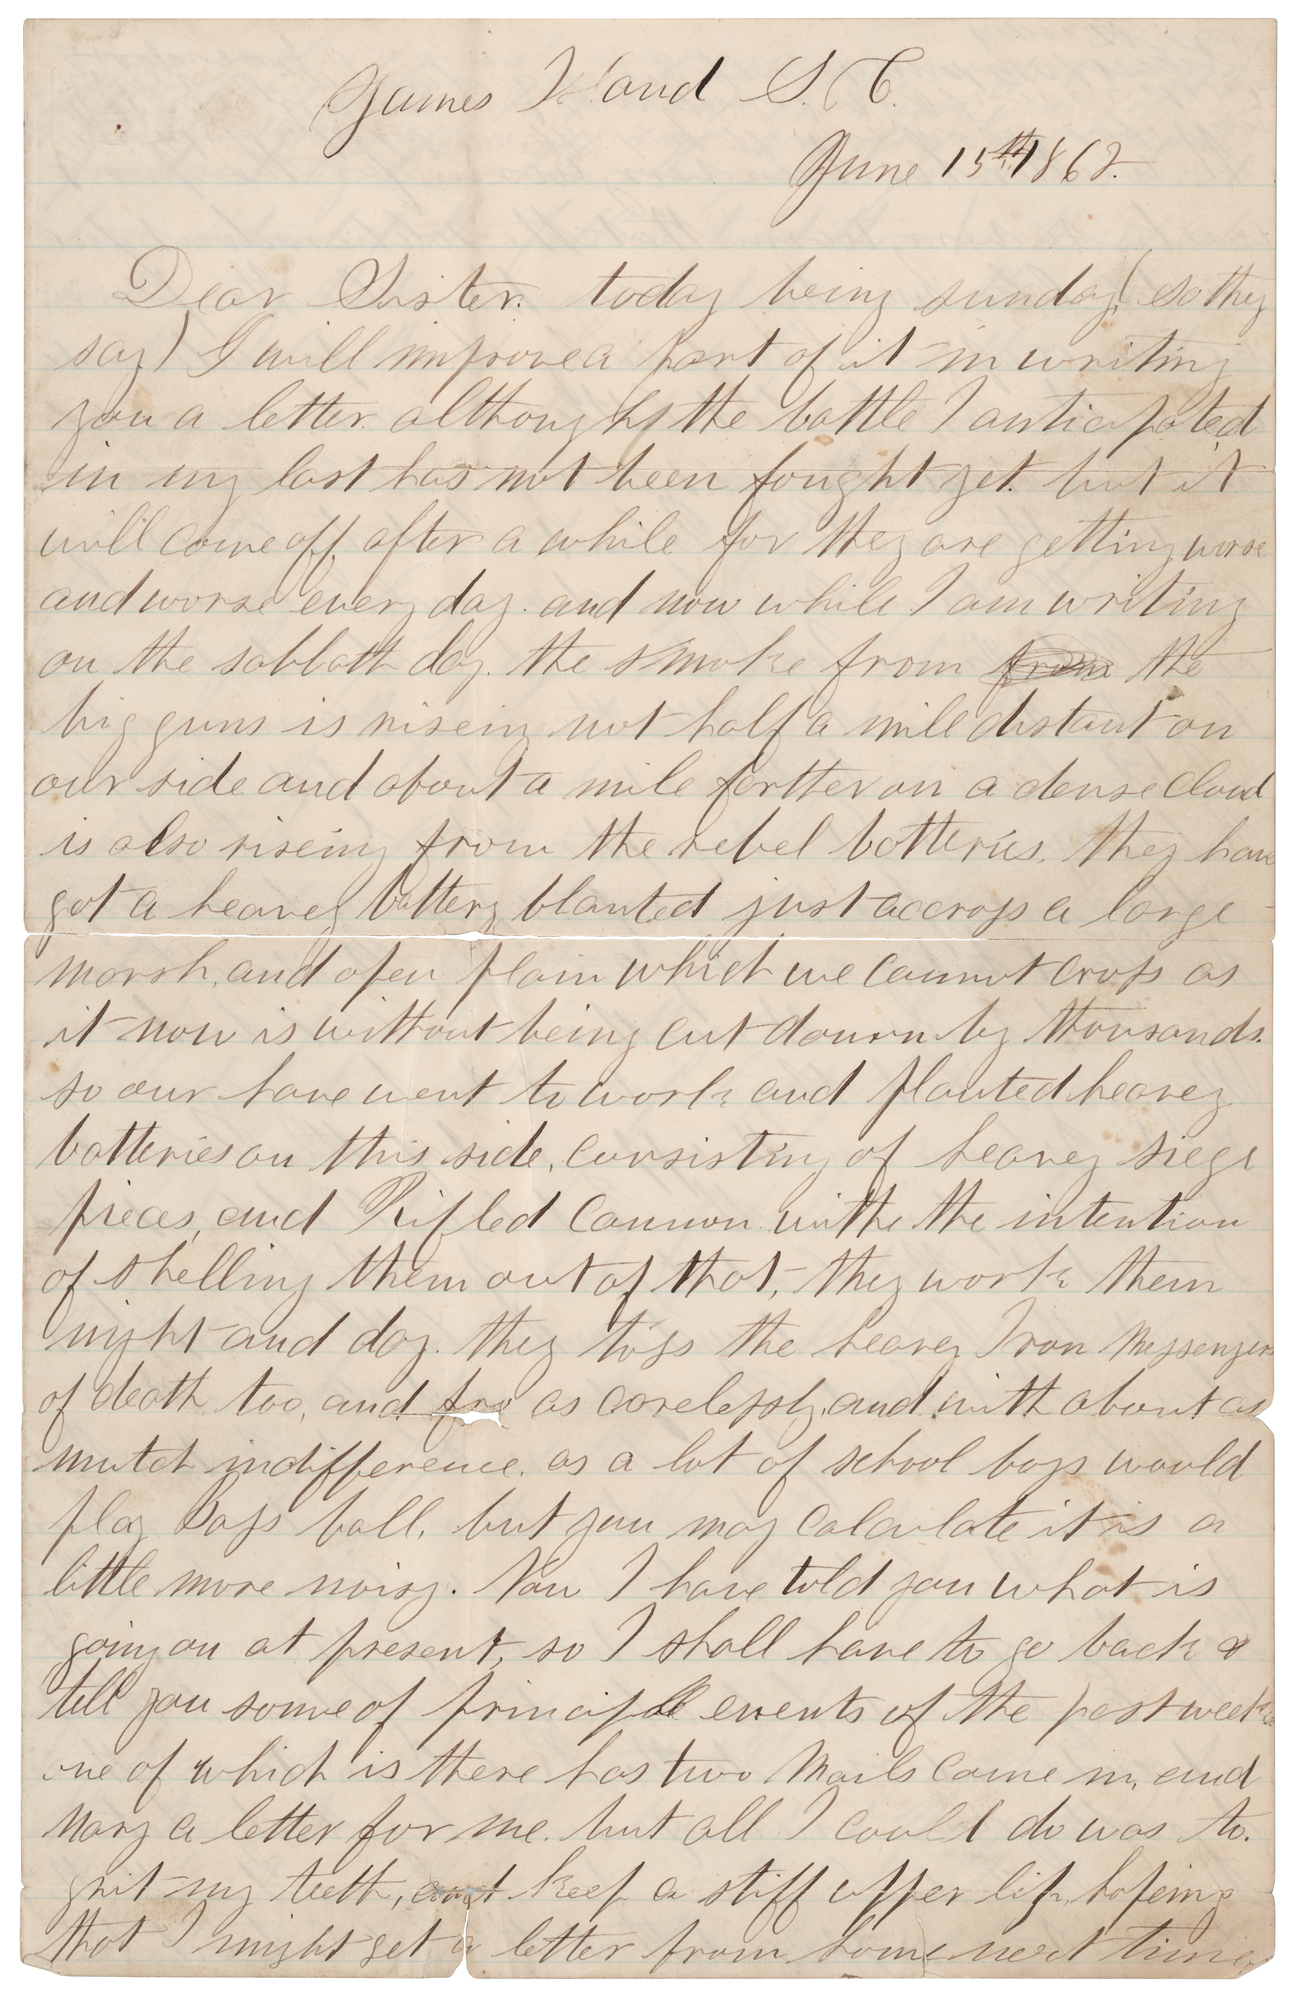 James Island S. C.
June 15th 1862.
Dear Sister. today being sunday, (so they
say) I will improve a part of it in writing
you a letter. although the battle I anticipated
in my last has not been fought yet. but it
will come off after a while for they are getting worse
and worse every day. and now while I am writing
on the sabbath day. the smoke from from the
big guns is riseing not half a mile distant on
our side and about a mile fartter on a dense cloud
is also riseing from the rebel batteries. they have
got a heavey battery blanted just accross a large
marsh, and open plain which we cannot cross as
it now is without being cut dowrn by thousands.
so our have went to work and planted heavey
batteries on this side, consisting of heavey siege
pieces, and Rifled Cannon withe the intention
of shelling them out of that, they work them
night and day. they toss the heavey Iron Messengers
of death too, and as carelessly, and with about as
mutch indifference. as a lot of school boys would
play Bass ball. but you may calculate it is a
little more noisy. Now I have told you what is
going on at present, so I shall have to go back &
tell you some of principall events of the past week
one of which is there has two Mails came in, and
nary a letter for me. but all I could do was to.
grit my teeth, and keep a stiff upper lip, hopeing
that I might get a letter from some next time